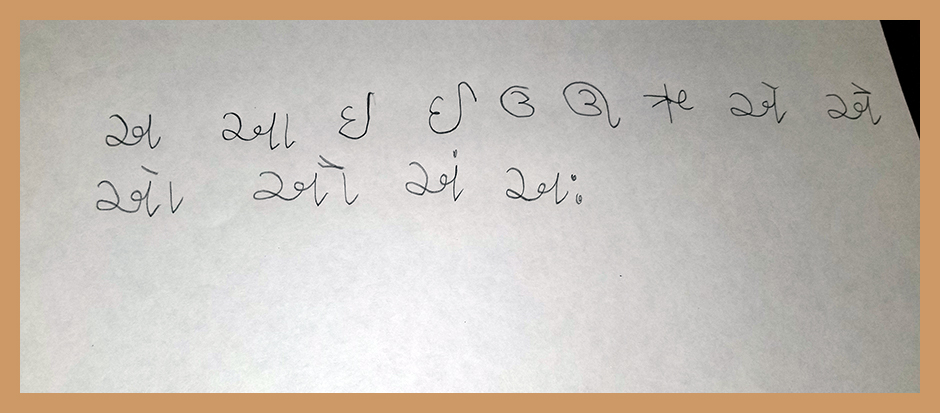 અ આ ઇ ઈ ઉ ઊ ઋ એ ઐ
ઓ ઔ અં અઃ